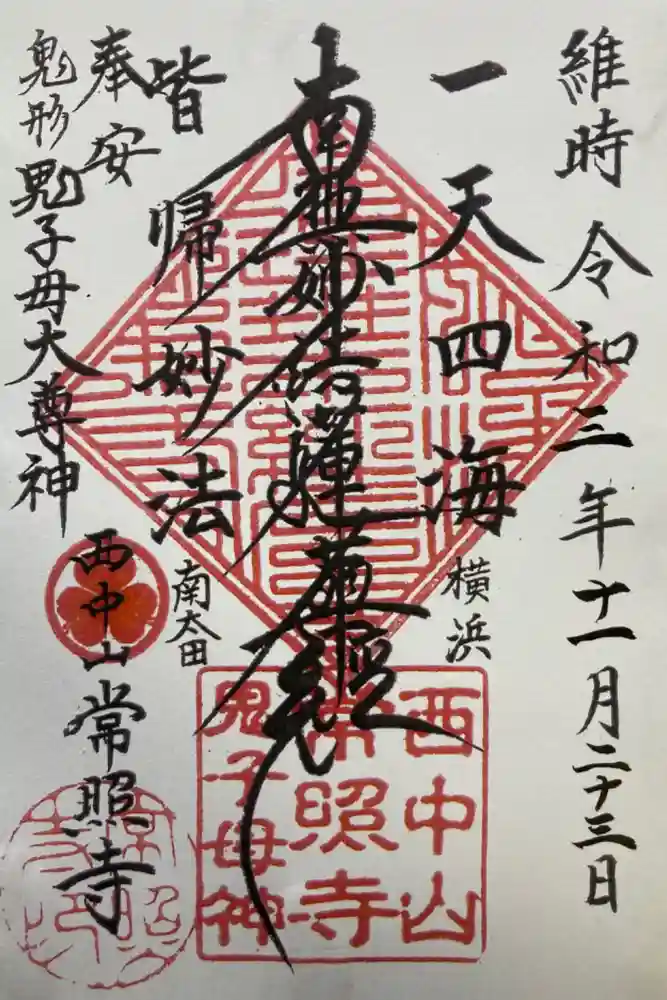 維時 令和三年十一月二十三日
一天四海
横浜
南無妙法蓮華経
皆帰妙法
南太田
奉安
鬼形鬼子母大尊神
西中山
常照寺
西中山
常照寺
鬼子母神